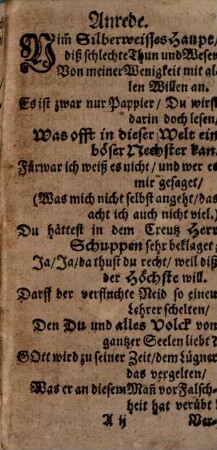 Anrede.
Nim̃ Silberweisses Haupt/
diß schlechte Thun und Wesen
Von meiner Wenigkeit mit al-
len Willen an.
Es ist zwar nur Pappier/ Du wirst
darin doch lesen/
Was offt in dieser Welt ein
böser Nechster kan.
Fürwar ich weiß es nicht/ und wer es
mir gesaget/
(Was mich nicht selbst angeht/ das
acht ich auch nicht viel.)
Du hättest in dem Creutz Herr
Schuppen sehr beklaget
Ja/ Ja/ da thust du recht/ weil diß
der Höchste will.
Darff der verfluchte Neid so einen
Lehrer schelten/
Den Du und alles Volck von
gantzer Seelen liebt?
GOtt wird zu seiner Zeit/ dem Lügner
das vergelten/
Was er an diesem Mañ vor Falsch-
heit hat verübt!
A ij Ver-